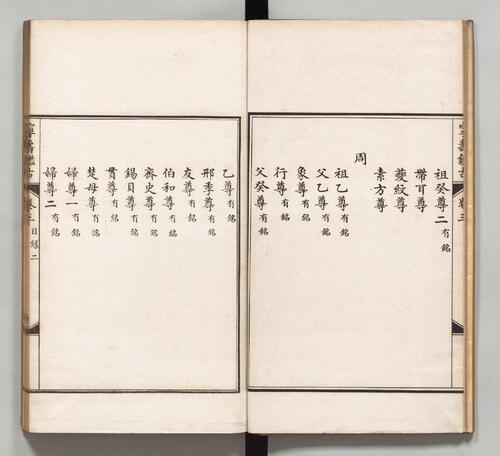 寧壽鑑古 卷三
祖癸尊二有銘
帶耳尊
夔紋尊
素方尊
周
祖乙尊有銘
父乙尊有銘
象尊有銘
行尊有銘
父癸尊有銘
乙尊有銘
邢季尊有銘
友尊有銘
伯和尊有銘
齋史尊有銘
錫貝尊有銘
貫尊有銘
楚母尊有銘
婦尊一有銘
婦尊二有銘
寧壽鑑古 卷三 目錄 二